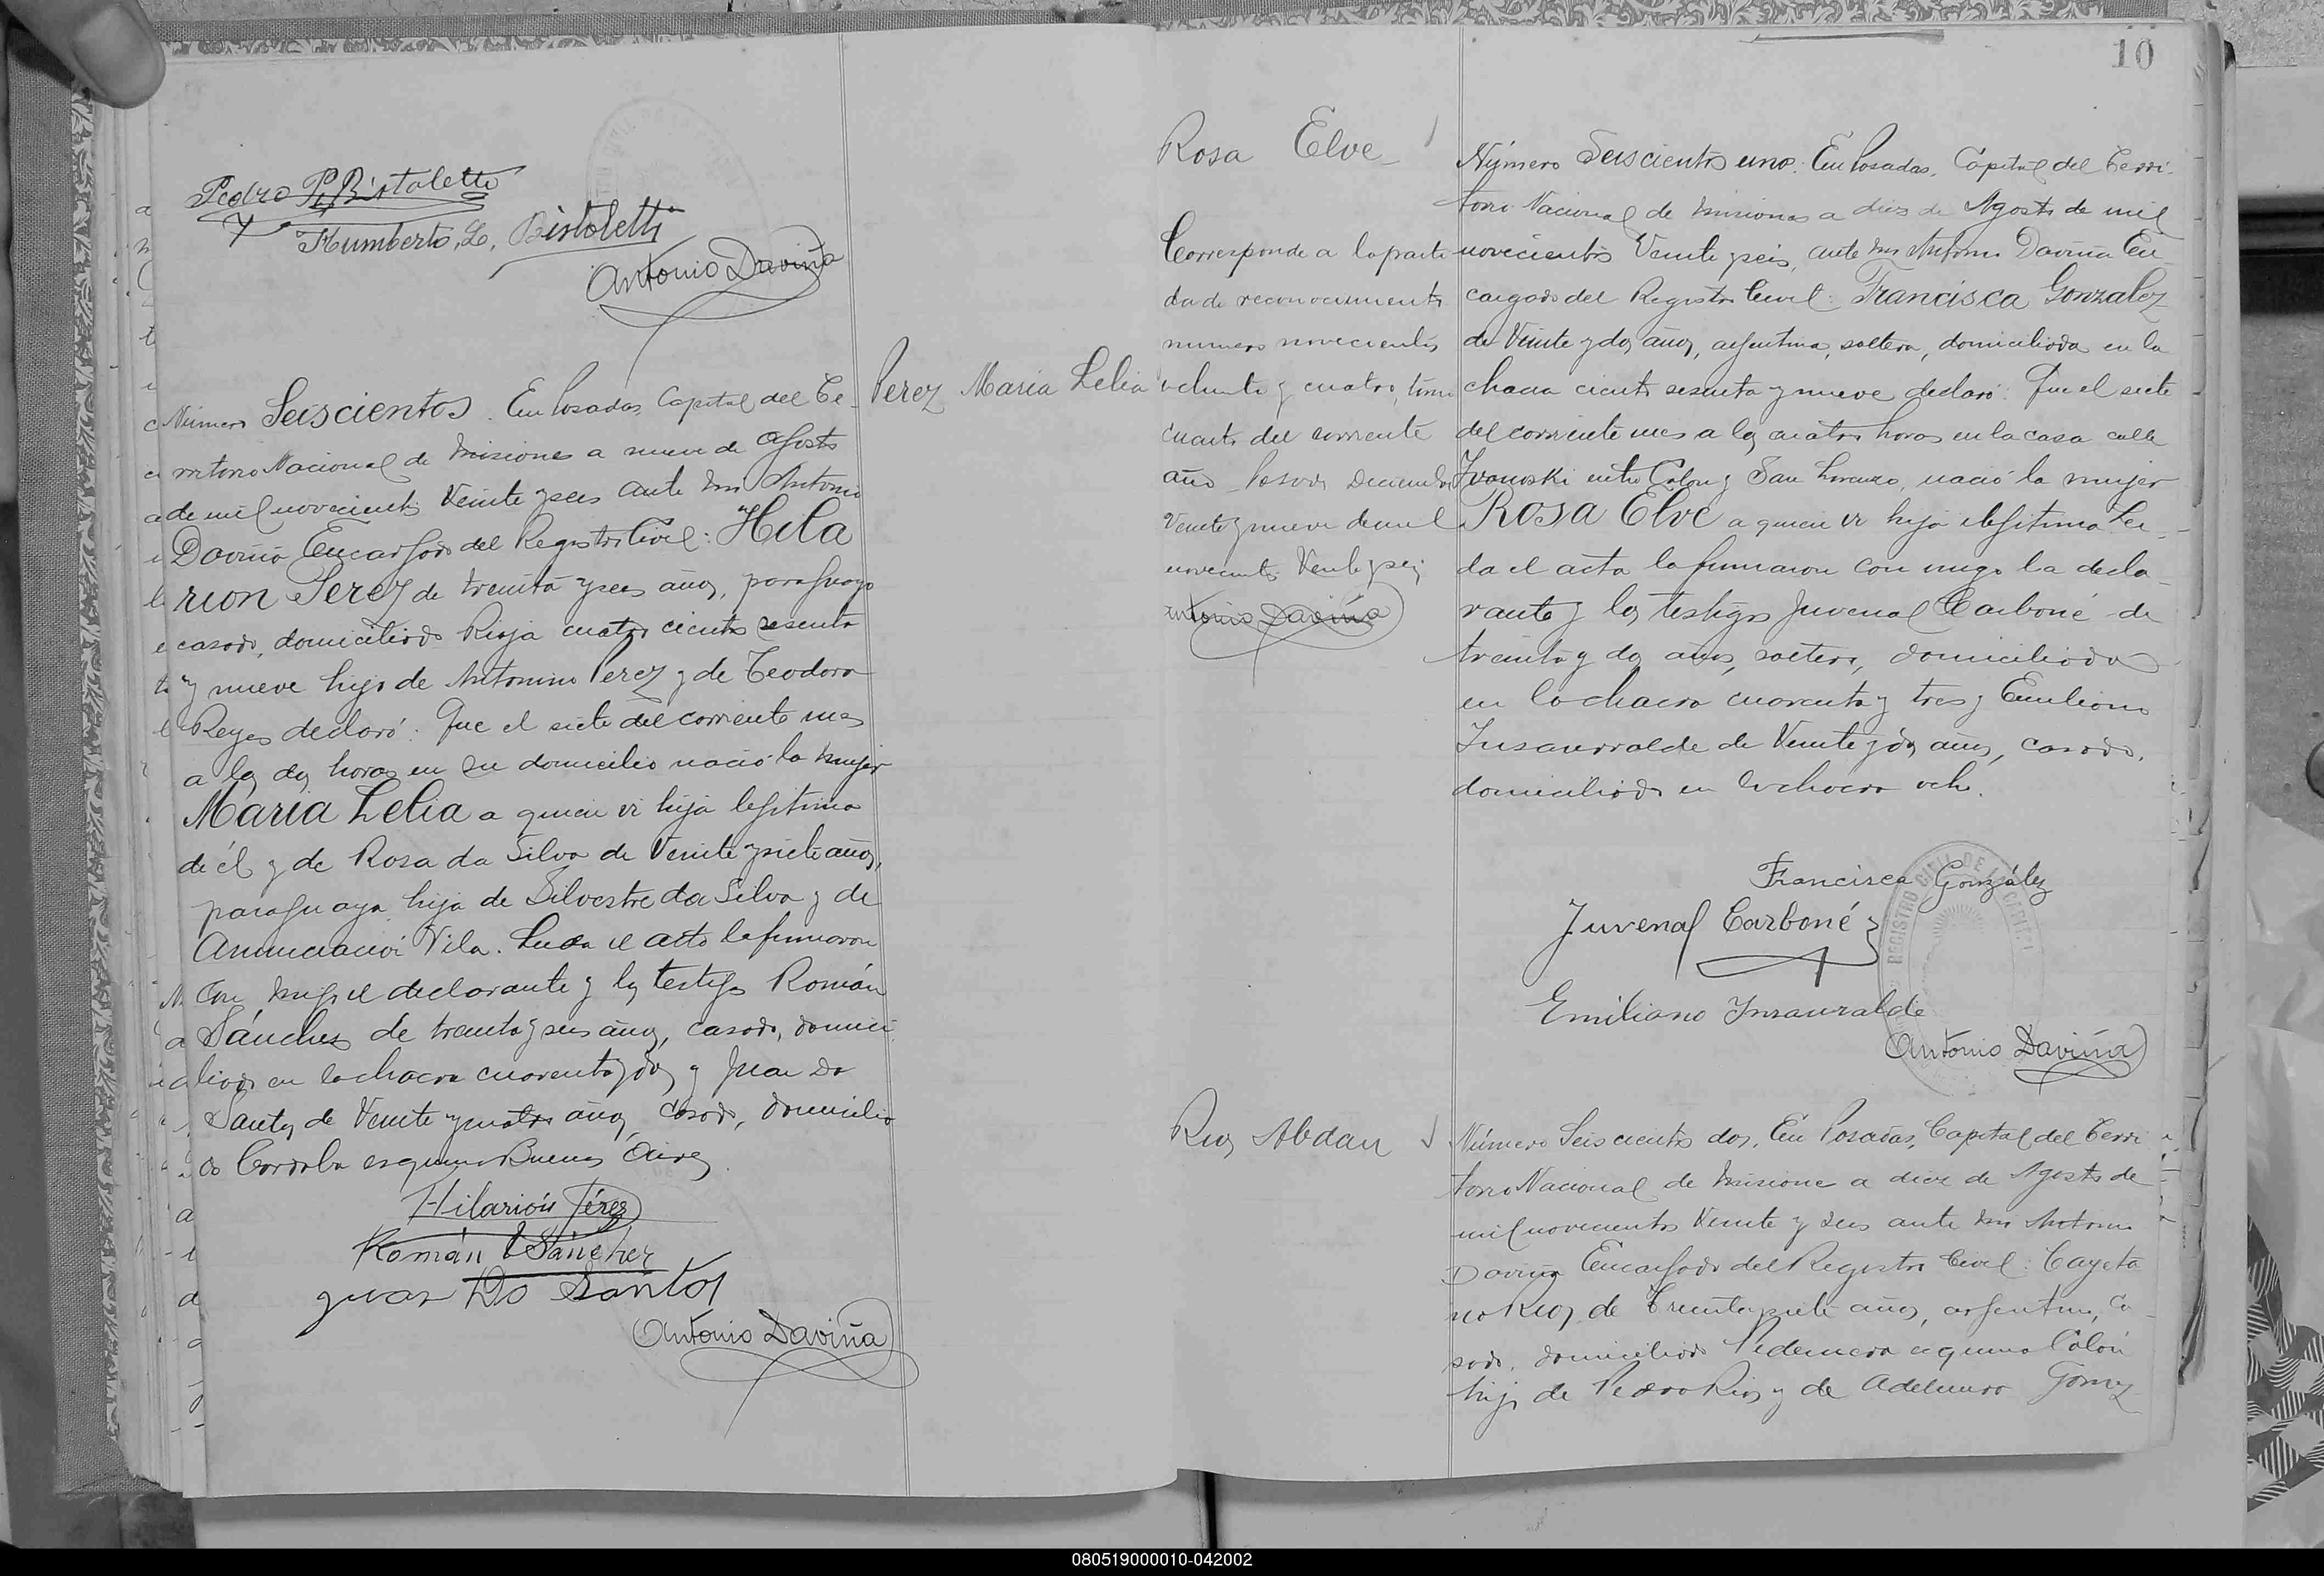 Pedro P. Bistoletti
y Humberto, L, Bistoletti
Antonio Daviña
Perez Maria Lelia
Número Seiscientos. En Posadas, Capital del Te-
rritorio Nacional de Misiones a nueve de Agosto
de mil novecientos Veinte y seis ante mi Antonio
Daviña Encargado del Registro Civil: Hila
rion Perez de treinta y seis años, paraguayo
casado, domiciliado Rioja cuatro cientos sesenta
y nueve hijo de Antonino Perez y de Teodora
Reyes declaró: Que el siete del corriente mes
a las dos horas en su domicilio nació la mujer
Maria Lelia a quien vi hija legitima
de él y de Rosa da Silva de Veinte y siete años,
paraguaya hija de Silvestre da Silva y de
Anunciación Vila. Leida el acta la firmaron
con migo el declarante y los testigos Román
Sánchez de treinta y seis años, casado, domici
liado en la chacra cuarenta y dos y Juan Do
Santos de Veinte y cuatro años, casado, domicilia
do Cordoba esquina Buenos Aires
Hilarión Pérez
Román Sánchez
Juan Do Santos
Antonio Daviña
10
Rosa Elve
Corresponde a la parti
da de reconocimiento
numero novecientos
ochenta y cuatro, tomo
cuarto del corriente
año Posadas Diciembre
Veinte y nueve de mil
novecientos Veinte y seis
Antonio Daviña
Número Seiscientos uno. En Posadas, Capital del Terri-
torio Nacional de Misiones a diez de Agosto de mil
novecientos Veinte y seis, ante mi Antonio Daviña En-
cargado del Registro Civil: Francisca Gonzalez
de Veinte y dos años, argentina, soltera, domiciliada en la
chacra ciento sesenta y nueve declaró: Que el siete
del corriente mes a las cuatro horas en la casa calle
Ivanoski entre Colon y San Lorenzo, nació la mujer
Rosa Elve a quien vi hija ilegitima Lei-
da el acta la firmaron con migo la decla-
rante y los testigos Juvenal Carboné de
treinta y dos años, soltero, domiciliado
en la chacra cuarenta y tres y Emiliano
Insaurralde de Veinte y dos años, casado,
domiciliado en la chacra ocho.
Francisca González
Juvenal Carboné
Emiliano Insauralde
REGISTRO CIVIL DE LA CAPITAL
Antonio Daviña
Rios Abdan
Número Seiscientos dos. En Posadas, Capital del Terri
torio Nacional de Misiones a diez de Agosto de
mil novecientos Veinte y seis ante mi Antonio
Daviña Encargado del Registro Civil: Cayeta
no Rios de Treinta y siete años, argentino, ca-
sado, domiciliado Pedernera esquina Colón
hijo de Pedro Rios y de Adelmira Gomez
080519000010-042002